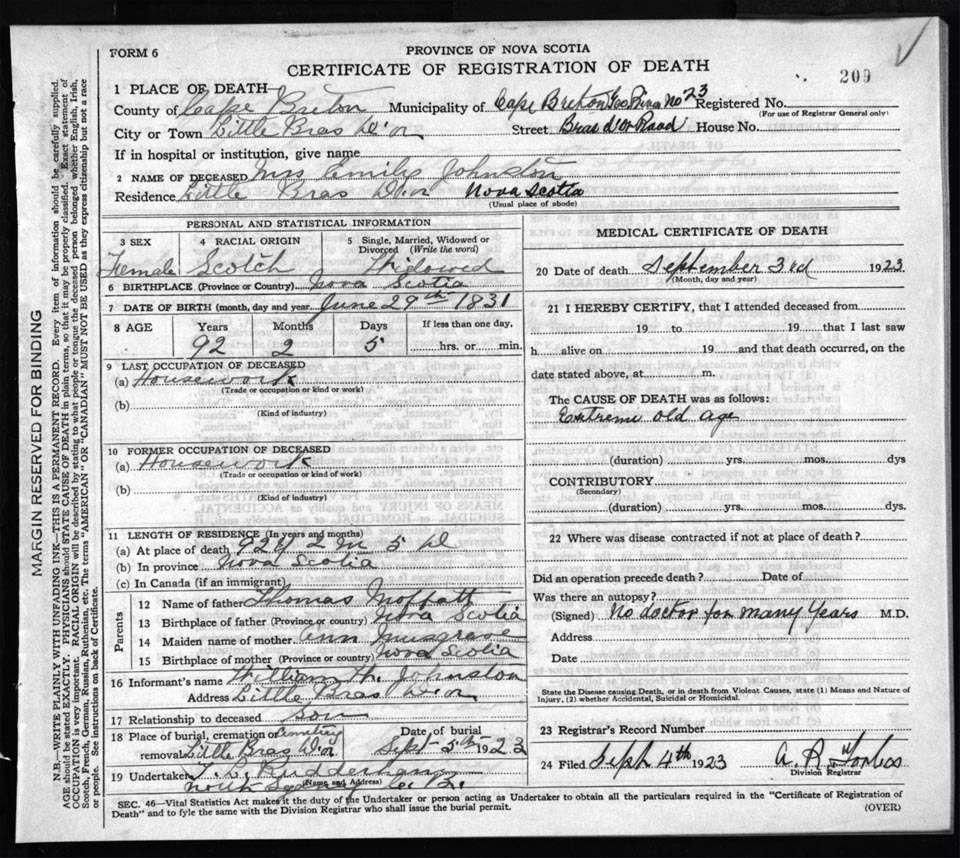 FORM 6
PROVINCE OF NOVA SCOTIA
CERTIFICATE OF REGISTRATION OF DEATH
209
1 PLACE OF DEATH
County of Cape Breton Municipality of Cape Breton No 23 Registered No.
(For use of Registrar General only)
City or Town Little Bras D'or Street Bras d'or Road House No.
If in hospital or institution, give name
2 NAME OF DECEASED Mrs Emily Johnston
Residence Little Bras D'or Nova Scotia
(Usual place of abode)
PERSONAL AND STATISTICAL INFORMATION
3 SEX 4 RACIAL ORIGIN 5 Single, Married, Widowed or Divorced (Write the word)
Female Scotch Widowed
6 BIRTHPLACE (Province or Country) Nova Scotia
7 DATE OF BIRTH (month, day and year) June 29th 1831
8 AGE Years Months Days If less than one day,
92 2 5 hrs. or min.
9 LAST OCCUPATION OF DECEASED
(a) Housework
(Trade or occupation or kind or work)
(b)
(Kind of industry)
10 FORMER OCCUPATION OF DECEASED
(a) Housework
(Trade or occupation or kind of work)
(b)
(Kind of industry)
11 LENGTH OF RESIDENCE (In years and months)
(a) At place of death 92 y 2 m 5 d
(b) In province Nova Scotia
(c) In Canada (if an immigrant)
Parents
12 Name of father Thomas Moffatt
13 Birthplace of father (Province or country) Nova Scotia
14 Maiden name of mother Ann Musgrave
15 Birthplace of mother (Province or country) Nova Scotia
16 Informant's name William Johnston
Address Little Bras D'or
17 Relationship to deceased Son
18 Place of burial, cremation or removal Cemetery Little Bras D'or Date of burial Sept 5th 1923
19 Undertaker Rudderham
(Name and Address)
North Sydney C. B.
MEDICAL CERTIFICATE OF DEATH
20 Date of death September 3rd 1923
(Month, day and year)
21 I HEREBY CERTIFY, that I attended deceased from
19 to 19 that I last saw
h alive on 19 and that death occurred, on the
date stated above, at m.
The CAUSE OF DEATH was as follows:
Extreme old age
(duration) yrs. mos. dys
CONTRIBUTORY
(Secondary)
(duration) yrs. mos. dys.
22 Where was disease contracted if not at place of death?
Did an operation precede death? Date of
Was there an autopsy?
(Signed) No doctor for many years M.D.
Address
Date
State the Disease causing Death, or in death from Violent Causes, state (1) Means and Nature of
Injury, (2) whether Accidental, Suicidal or Homicidal.
23 Registrar's Record Number
24 Filed Sept 4th 1923 A. R.
Division Registrar
SEC. 46—Vital Statistics Act makes it the duty of the Undertaker or person acting as Undertaker to obtain all the particulars required in the "Certificate of Registration of
Death" and to fyle the same with the Division Registrar who shall issue the burial permit.
(OVER)
MARGIN RESERVED FOR BINDING
N.B.—WRITE PLAINLY WITH UNFADING INK—THIS IS A PERMANENT RECORD. Every item of information should be carefully supplied.
AGE should be stated EXACTLY. PHYSICIANS should STATE CAUSE OF DEATH in plain terms, so that it may be properly classified. Exact statement of
OCCUPATION is very important. RACIAL ORIGIN will be described by stating to what people or tongue the deceased person belonged whether English, Irish,
Scotch, French, German, Russian, Ruthenian, etc. The terms "AMERICAN" OR "CANADIAN" MUST NOT BE USED as they express citizenship but not a race
or people. See instructions on back of Certificate.